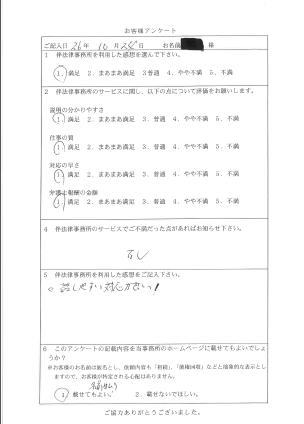 お客様アンケート
ご記入日 26年 10月 25日 お名前 様
1 伴法律事務所を利用した感想を選んで下さい。
1. 満足 2. まあまあ満足 3 普通 4. やや不満 5. 不満
2 伴法律事務所のサービスに関し、以下の点について評価をお願いします。
説明の分かりやすさ
1. 満足 2. まあまあ満足 3. 普通 4. やや不満 5. 不満
仕事の質
1. 満足 2. まあまあ満足 3. 普通 4. やや不満 5. 不満
対応の早さ
1. 満足 2. まあまあ満足 3. 普通 4. やや不満 5. 不満
弁護士報酬の金額
1. 満足 2. まあまあ満足 3. 普通 4. やや不満 5. 不満
4 伴法律事務所のサービスでご不満だった点があればお知らせ下さい。
なし
5 伴法律事務所を利用した感想をご記入下さい。
話しやすい 対応が
6 このアンケートの記載内容を当事務所のホームページに載せてもよいでしょ
うか？
※お客様のお名前は匿名とし、依頼内容も「相続」「債権回収」などと抽象的な表示とし
ますので、お客様が特定される心配はありません。
1. 載せてもよい。 2. 載せないでほしい。
ご協力ありがとうございました。